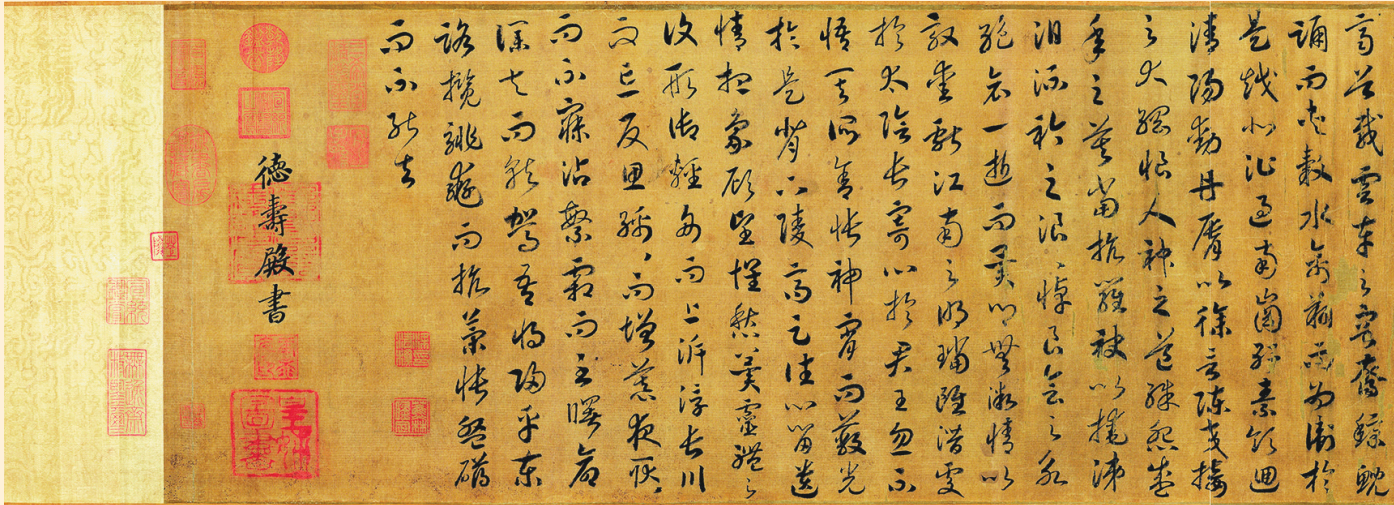 齊首載雲車之容裔鯨鯢
踊而夾轂水禽翔而為衛於
是越北沚過南岡紆素領迴
清陽動丹脣以徐言陳交接
之大綱恨人神之道殊怨盛
年之莫當抗羅袂以掩涕
泪流衿之浪〻悼良會之永
絕哀一逝而異鄉無微情以
效愛獻江南之明璫雖潛處
於太陰長寄心於君王忽不
悟其所舍悵神宵而蔽光
於是背下陵高足往心留遺
情想象顧望懷愁冀靈體之
復形御輕舟而上泝浮長川
而忘反思緜〻而增慕夜耿〻
而不寐沾繁霜而至曙命
僕夫而就駕吾將歸乎東
路攬騑轡而抗策悵盤桓
而不能去
德壽殿書